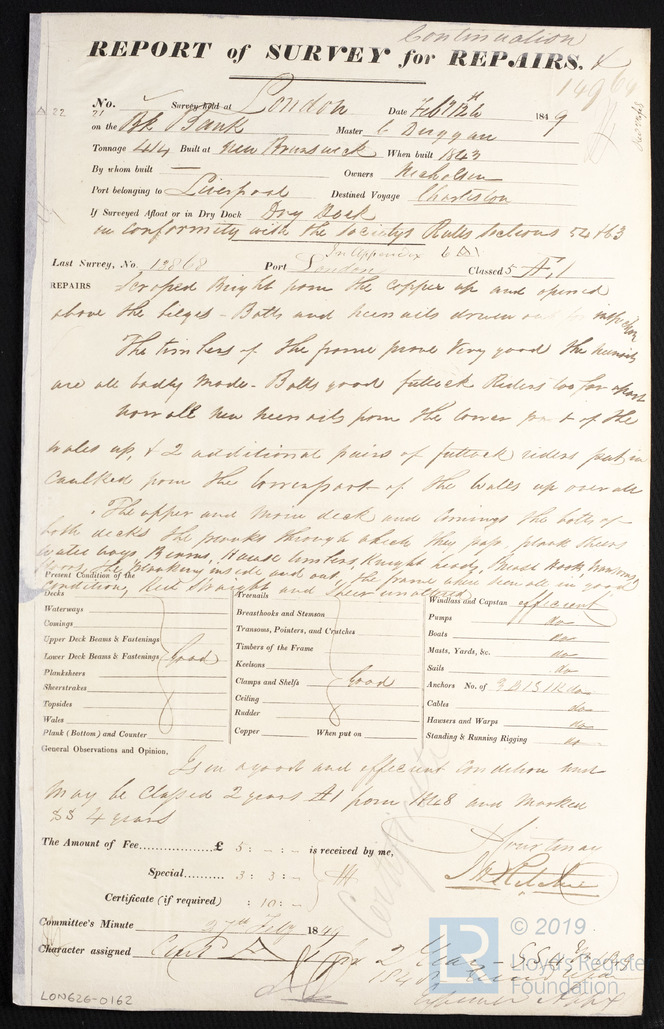 Continuation
REPORT of SURVEY for REPAIRS.
14964
22
No. 21 Survey held at London Date Feby 12th 1849
on the Bk Bank Master C Duggan
Tonnage 414 Built at New Brunswick When built 1843
By whom built — Owners Nicholson
Port belonging to Liverpool Destined Voyage Charleston
If Surveyed Afloat or in Dry Dock Dry Dock
in conformity with the Societys Rules Sections 52 & 63
In Appendix 6
Last Survey, No. 13868 Port London Classed 5 Æ 1
REPAIRS Scraped Bright from the copper up and opened
above the bilges - Bolts and treenails driven out for inspection
The timbers of the frame prove very good the treenails
are all badly made - Bolts good futtock Riders too far apart
now all new treenails from the lower part of the
wales up, & 2 additional pairs of futtock riders put in
Caulked from the lower part of the wales up over all
The upper and main deck and Comings the bolts of
both decks the planks through which they pass plank sheers
water ways Beams, Hawse timbers, Knight heads, Breast Hooks, Transoms,
floors, the planking inside and out, the frame where seen all in good
Condition, Red Straight and Sheer unaltered
Present Condition of the
Decks
Waterways
Comings
Upper Deck Beams & Fastenings
Lower Deck Beams & Fastenings Good
Planksheers
Sheerstrakes
Topsides
Wales
Plank (Bottom) and Counter
Treenails
Breasthooks and Stemson
Transoms, Pointers, and Crutches
Timbers of the Frame
Keelsons
Clamps and Shelfs Good
Ceiling
Rudder
Copper When put on
Windlass and Capstan efficient
Pumps do
Boats do
Masts, Yards, &c. do
Sails do
Anchors No. of 3 B 1 S 1 K do
Cables do
Hawsers and Warps do
Standing & Running Rigging do
General Observations and Opinion.
Is in a good and efficient Condition and
may be Classed 2 years Æ1 from 1848 and marked
SS 4 years
The Amount of Fee £ 5 : - : - is received by me,
Special 3 : 3 : -
Certificate (if required) : 10 : -
Certificate
Surveyor
J H Ritchie
Committee's Minute 27th Feby 1849
Character assigned
2 Years
LON626-0162
© 2019
LR
Lloyd's Register
Foundation